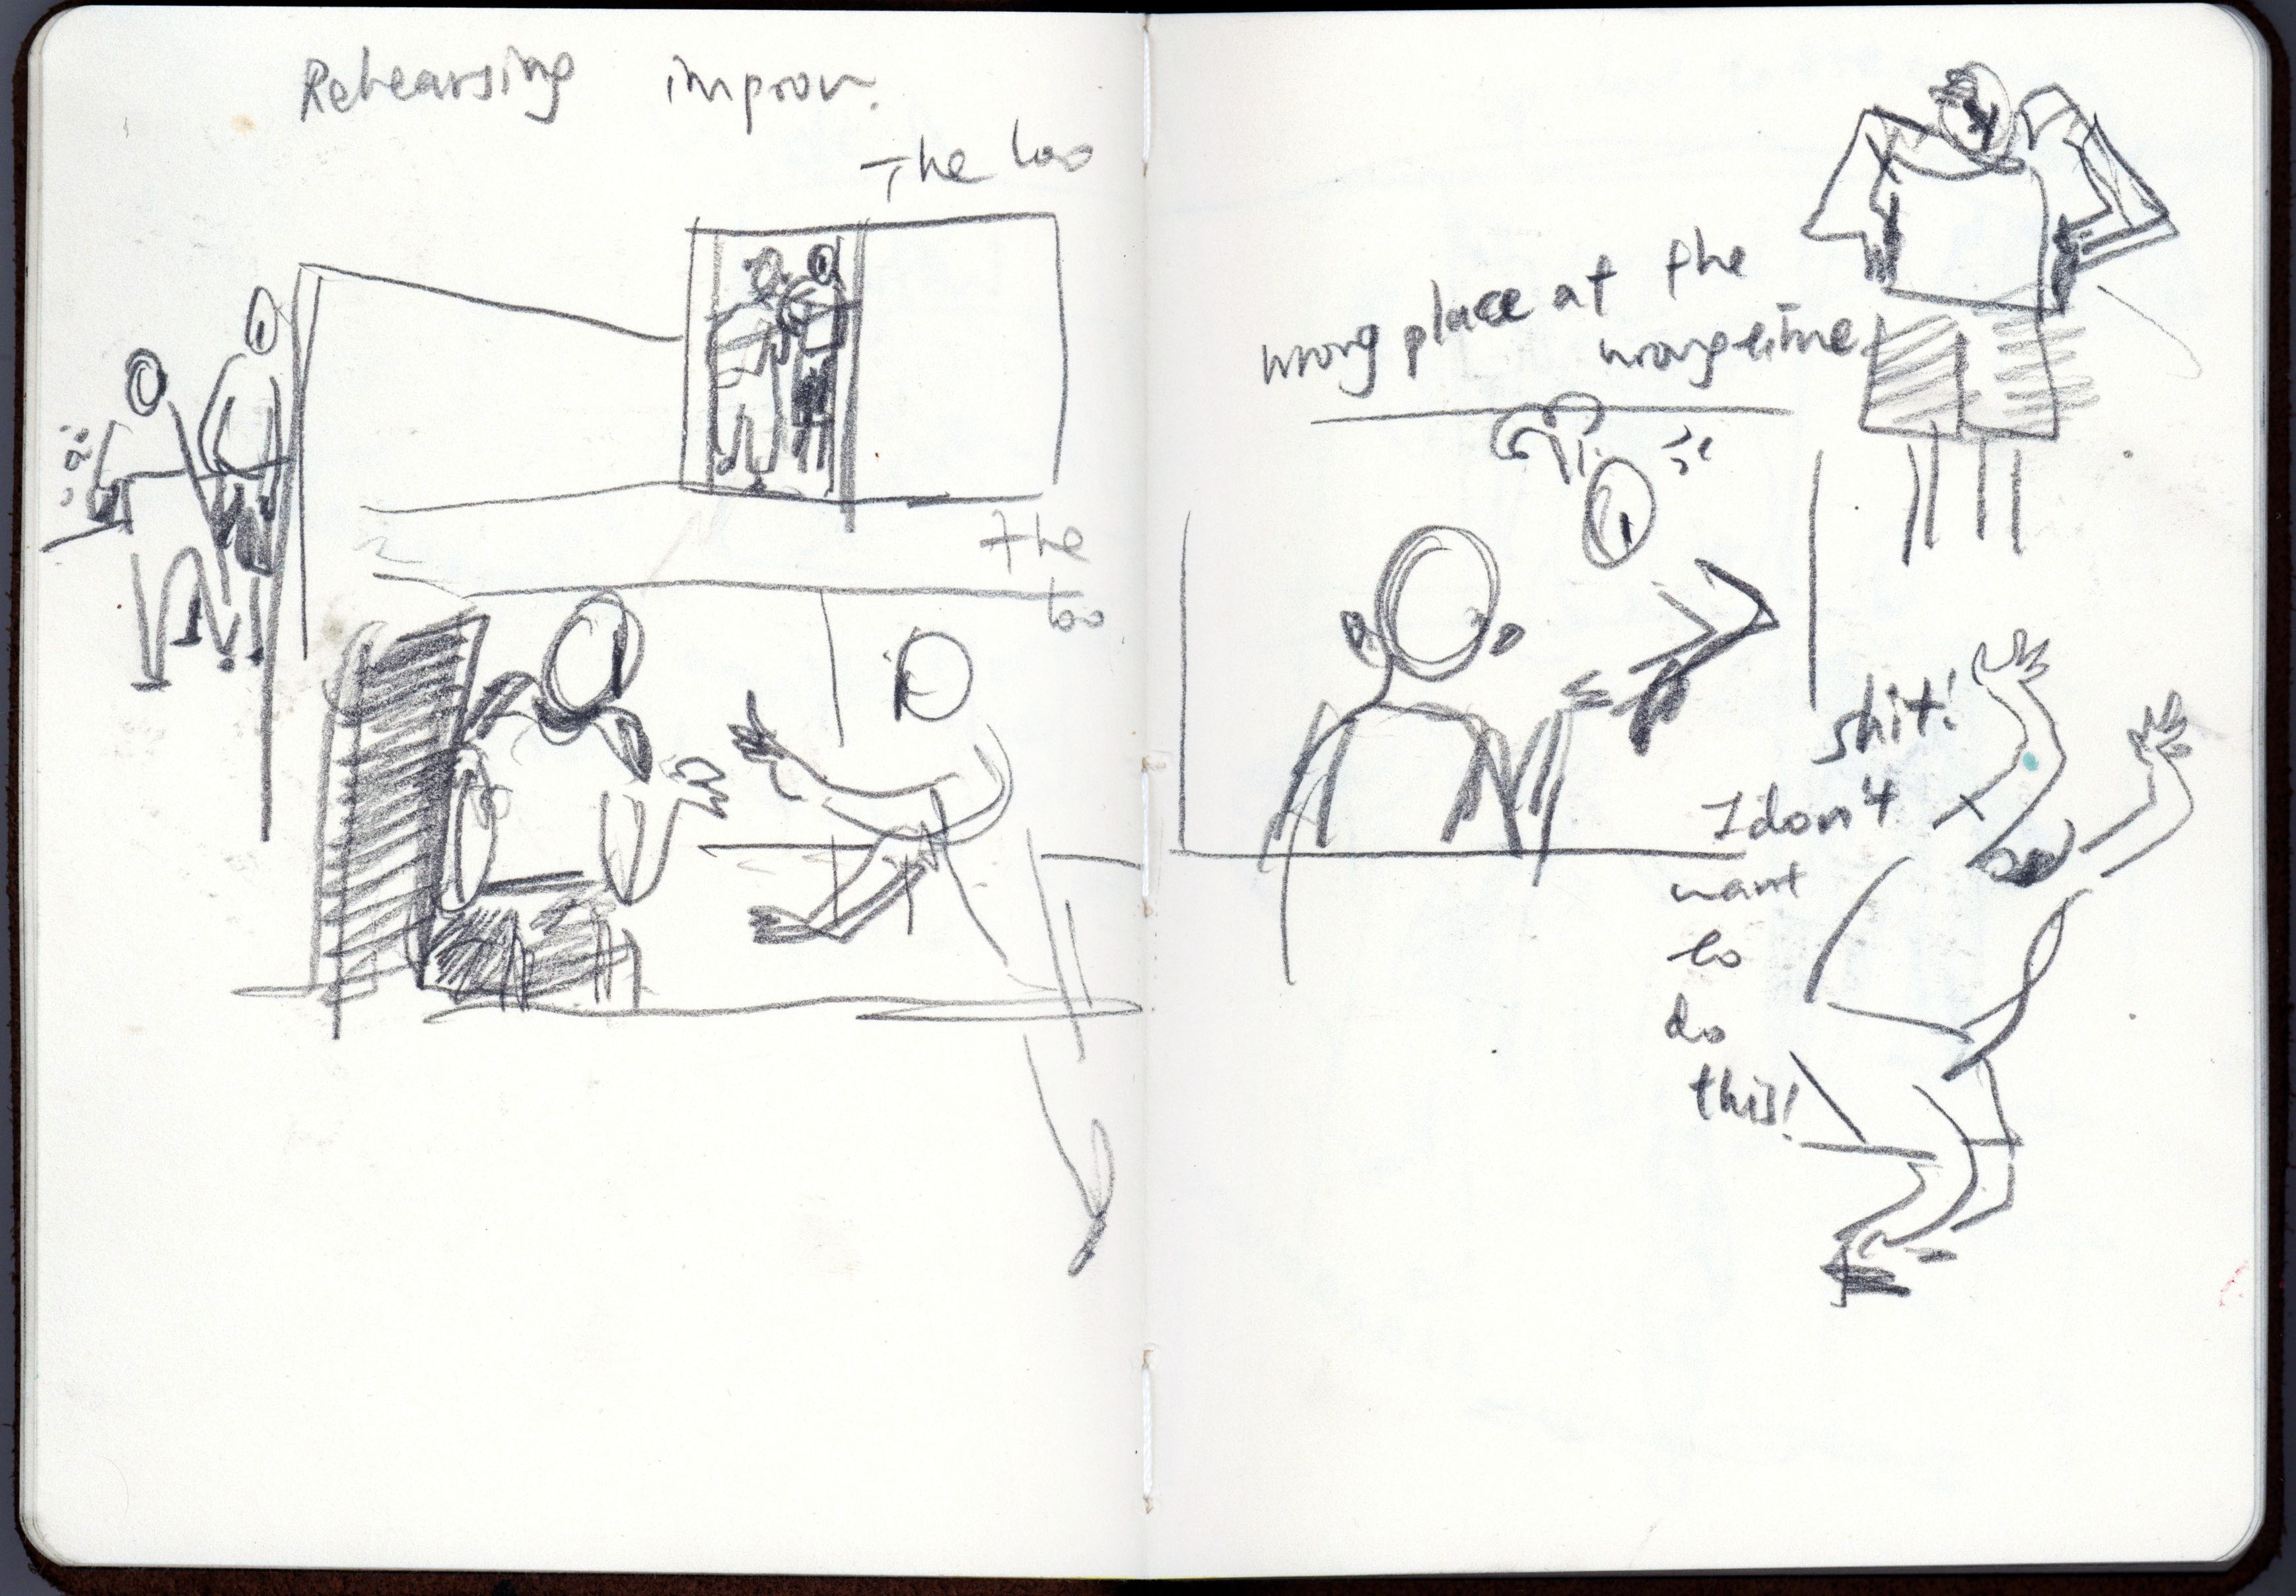 Rehearsing improv.
The loo
The
loo
wrong place at the
wrong time
shit!
I don't
want
to
do
this!